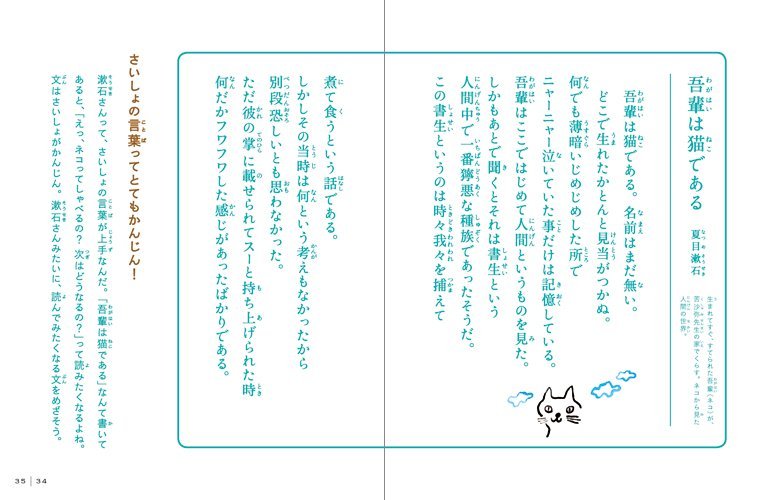 吾輩は猫である
夏目漱石
生まれてすぐ、すてられた吾輩(ネコ)が、
苦沙弥先生の家でくらす。ネコから見た
人間の世界。
吾輩は猫である。名前はまだ無い。
どこで生れたかとんと見当がつかぬ。
何でも薄暗いじめじめした所で
ニャーニャー泣いていた事だけは記憶している。
吾輩はここではじめて人間というものを見た。
しかもあとで聞くとそれは書生という
人間中で一番獰悪な種族であったそうだ。
この書生というのは時々我々を捕えて
煮て食うという話である。
しかしその当時は何という考えもなかったから
別段恐しいとも思わなかった。
ただ彼の掌に載せられてスーと持ち上げられた時
何だかフワフワした感じがあったばかりである。
さいしょの言葉ってとてもかんじん!
漱石さんって、さいしょの言葉が上手なんだ。「吾輩は猫である」なんて書いて
あると、「えっ、ネコってしゃべるの? 次はどうなるの?」って読みたくなるよね。
文はさいしょがかんじん。漱石さんみたいに、読んでみたくなる文をめざそう。
35 | 34